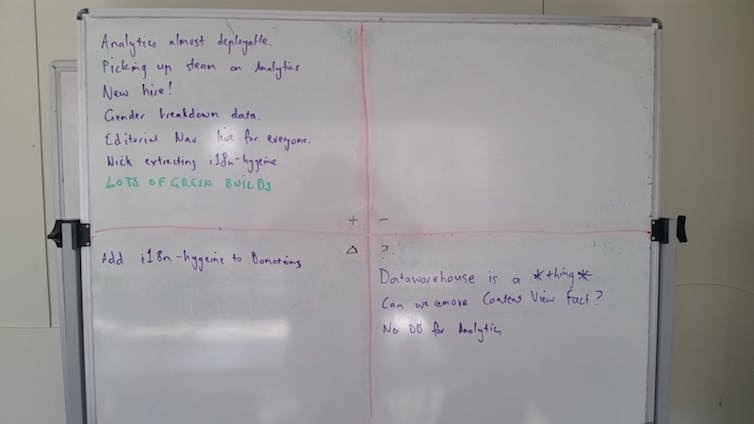 Analytics almost deployable.
Picking up steam on Analytics
New hire!
Gender breakdown data.
Editorial Nav live for everyone.
Nick extracting i18n-hygeine
LOTS OF GREEN BUILDS
+ -
Δ ?
Add i18n-hygeine to Donations
Datawarehouse is a *thing*
Can we remove Content View Fact?
No DB for Analytics